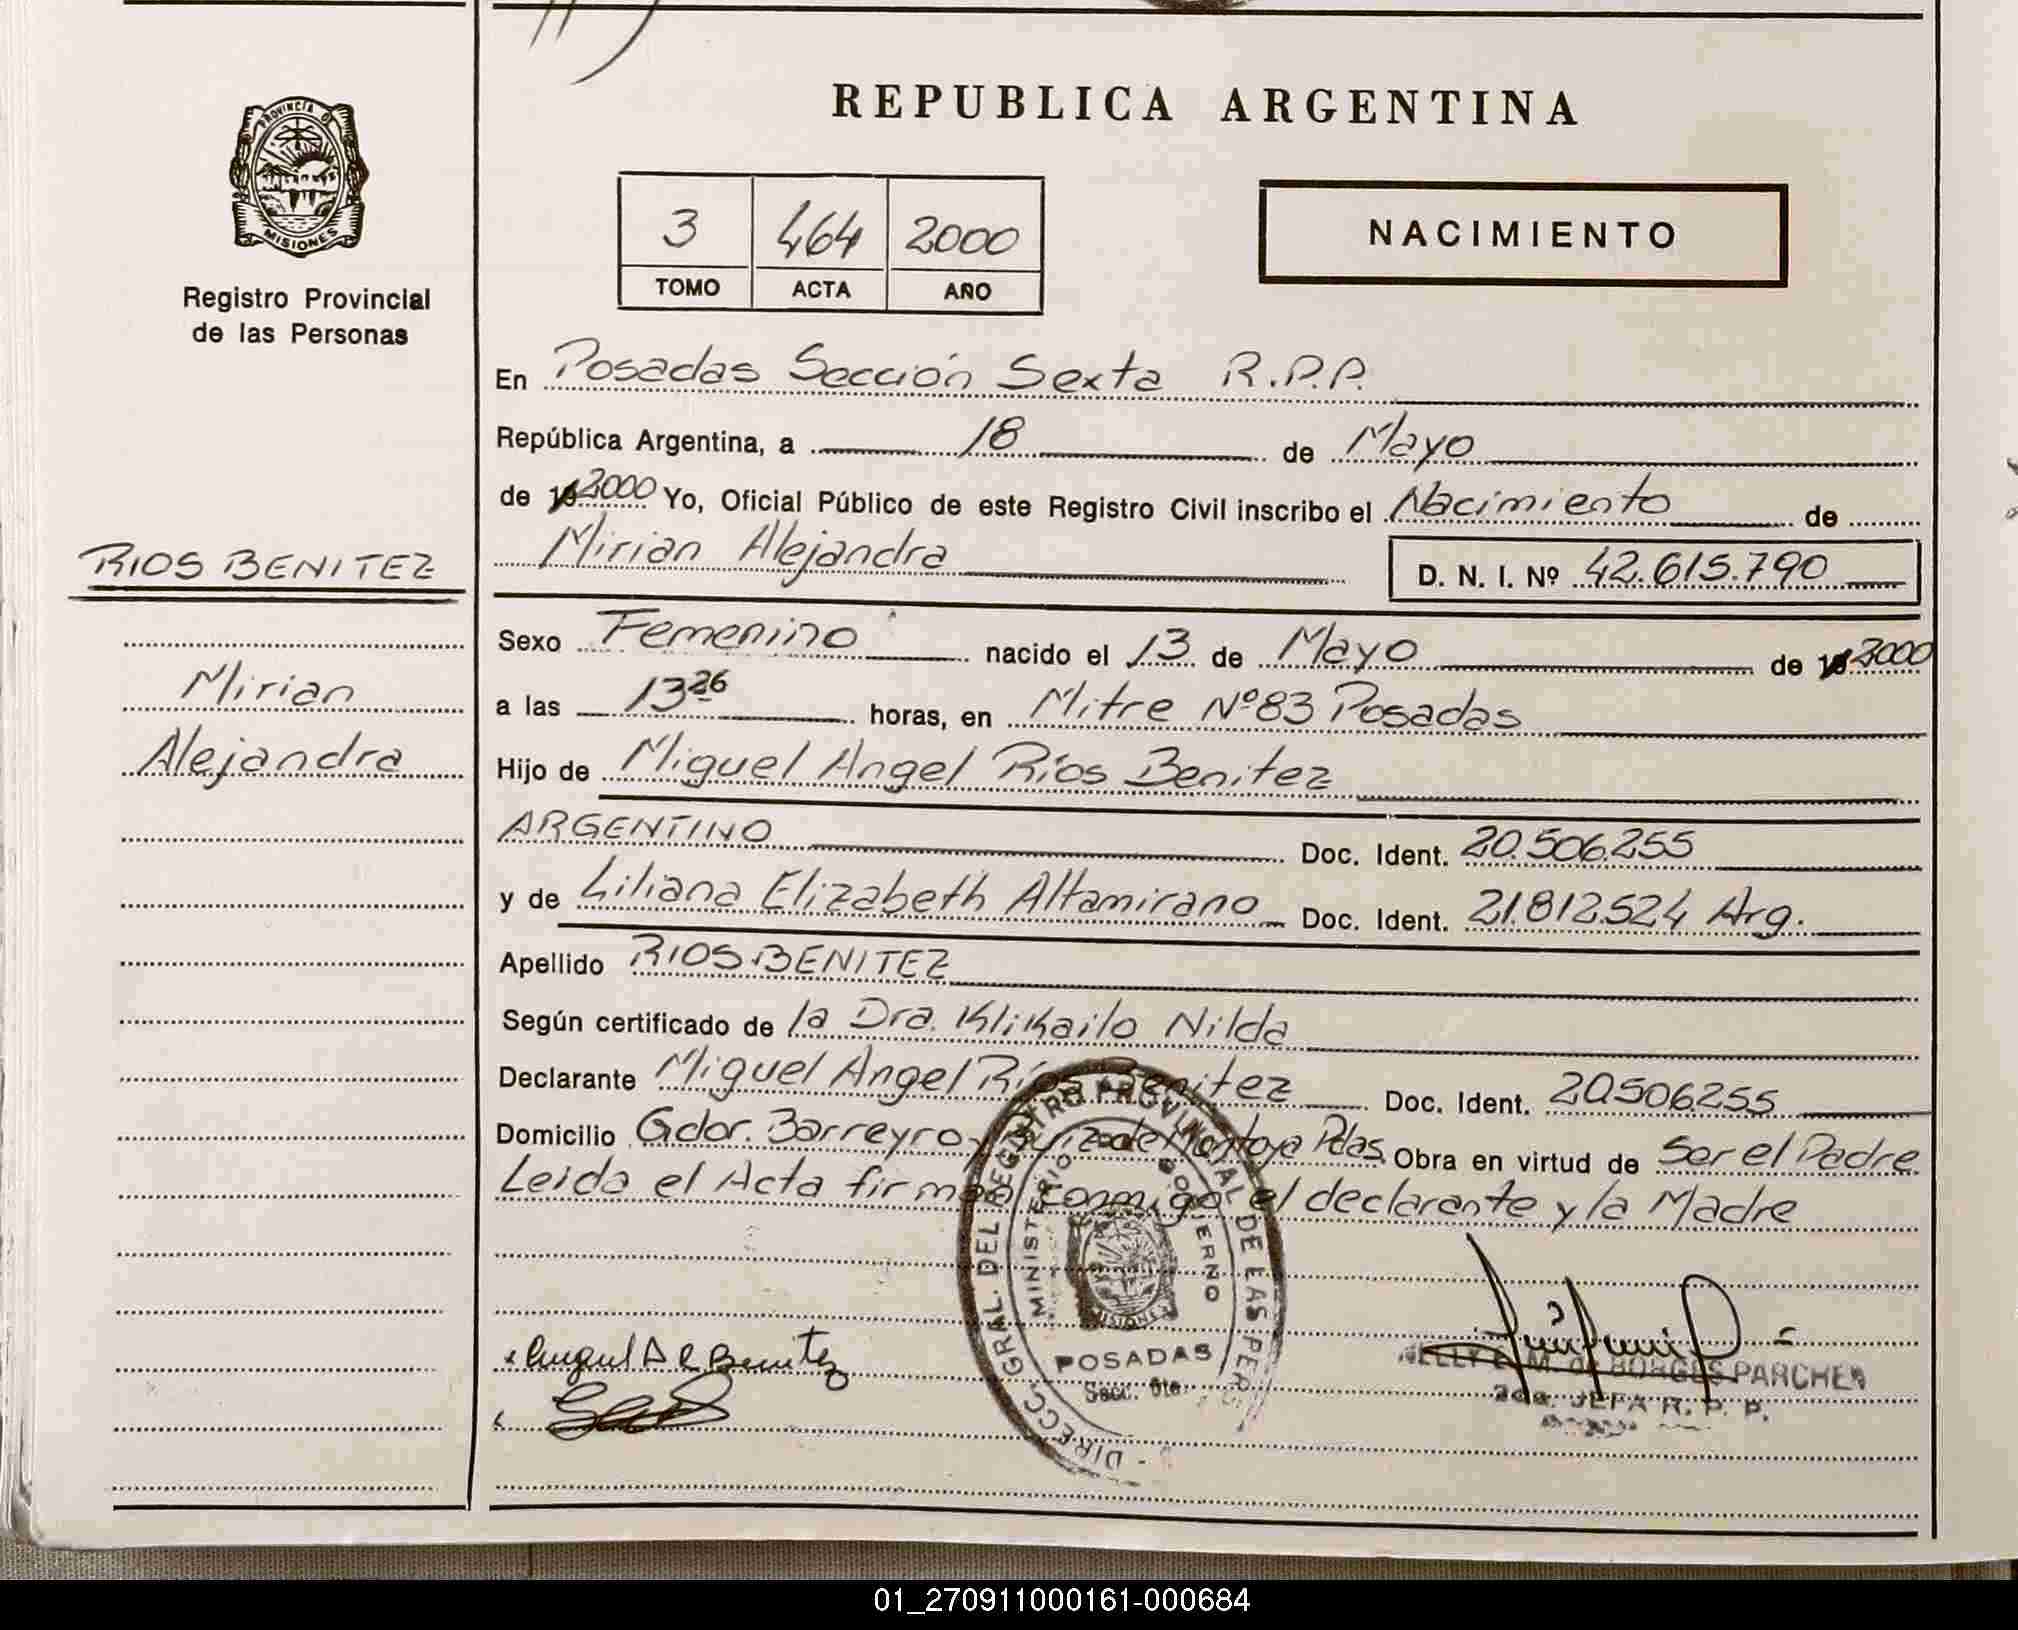 PROVINCIA DE
MISIONES
Registro Provincial
de las Personas
RIOS BENITEZ
Mirian
Alejandra
REPUBLICA ARGENTINA
3 464 2000
TOMO ACTA AÑO
NACIMIENTO
En Posadas Sección Sexta R.P.P.
República Argentina, a 18 de Mayo
de 19 2000 Yo, Oficial Público de este Registro Civil inscribo el Nacimiento de
Mirian Alejandra D. N. I. Nº 42.615.790
Sexo Femenino nacido el 13 de Mayo de 19 2000
a las 13 26 horas, en Mitre Nº 83 Posadas
Hijo de Miguel Angel Ríos Benitez
ARGENTINO Doc. Ident. 20.506.255
y de Liliana Elizabeth Altamirano Doc. Ident. 21.812.524 Arg.
Apellido RIOS BENITEZ
Según certificado de la Dra. Klikailo Nilda
Declarante Miguel Angel Ríos Benitez Doc. Ident. 20.506.255
Domicilio Gdor. Barreyro y Ruiz de Montoya Pdas. Obra en virtud de Ser el Padre
Leida el Acta firman conmigo el declarante y la Madre
DIRECC. GRAL. DEL REGISTRO PROVINCIAL DE LAS PER
MINISTERIO DE GOBIERNO
POSADAS
Secc. 6ta.
Benitez
NELLY E. M. de BORGES PARCHEN
2da. JEFA R. P. P.
01_270911000161-000684